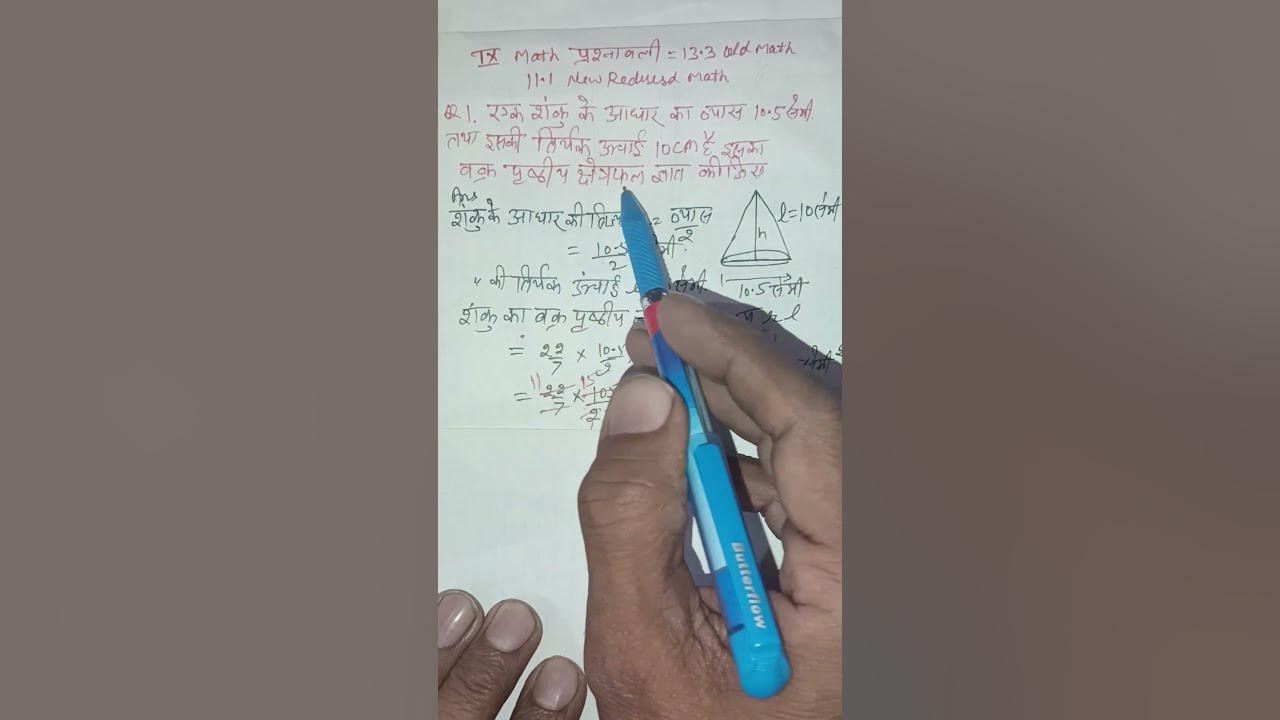 IX Math प्रश्नावली = 13.3 old Math
11.1 New Reduced Math
Q 1. एक शंकु के आधार का व्यास 10.5 सेमी.
तथा इसकी तिर्यक ऊंचाई 10cm है इसका
वक्र पृष्ठीय क्षेत्रफल ज्ञात कीजिए
Ans
शंकु के आधार की = व्यास/2
= 10.5/2 सेमी.
" की तिर्यक ऊंचाई सेमी.
शंकु का वक्र पृष्ठीय
= 22/7 × 10.5/2
= 22/7 × 105/2
11 15
l = 10 सेमी
h
10.5 सेमी
π r l
सेमी²
Butterflow